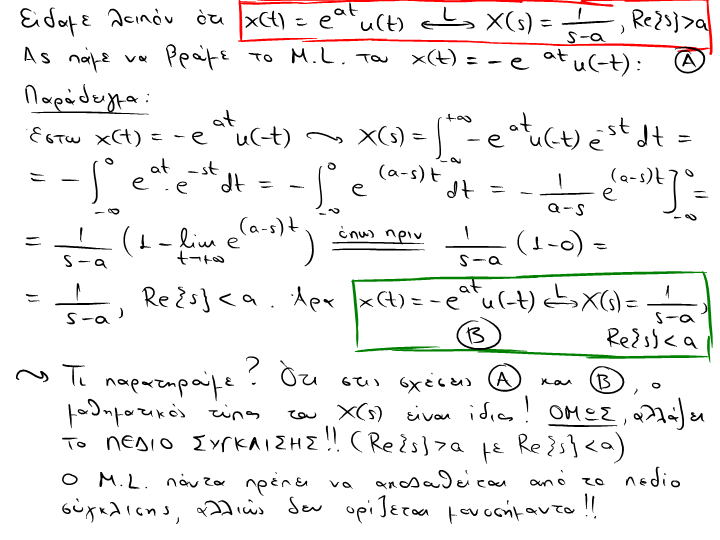 Είδαμε λοιπόν ότι x(t) = e^{at} u(t) ⟷^{L} X(s) = 1/(s-a), Re{s}>a
Ας πάμε να βράμε το M.L. του x(t) = - e^{at} u(-t): Ⓐ
Παράδειγμα:
Έστω x(t) = -e^{at} u(-t) ⤳ X(s) = ∫_{-∞}^{+∞} -e^{at} u(-t) e^{-st} dt =
= - ∫_{-∞}^{0} e^{at} · e^{-st} dt = - ∫_{-∞}^{0} e^{(a-s)t} dt = - 1/(a-s) e^{(a-s)t} ]_{-∞}^{0} =
= 1/(s-a) (1 - lim_{t→+∞} e^{(a-s)t}) =^{όπως πριν} 1/(s-a) (1-0) =
= 1/(s-a), Re{s} < a. Άρα x(t) = -e^{at} u(-t) ⟷^{L} X(s) = 1/(s-a),
Ⓑ Re{s} < a
⤳ Τι παρατηράμε? Ότι στις σχέσεις Ⓐ και Ⓑ, ο
μαθηματικός τύπος του X(s) είναι ίδιος! ΟΜΩΣ, αλλάζει
το ΠΕΔΙΟ ΣΥΓΚΛΙΣΗΣ!! (Re{s}>a με Re{s}<a)
Ο M.L. πάντα πρέπει να ακολαθείται από το πεδίο
σύγκλισης, αλλιώς δεν ορίζεται μονοσήμαντα!!